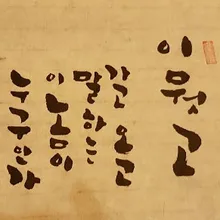 이뭣고
가고 오고
말하는
이놈이
누구인가